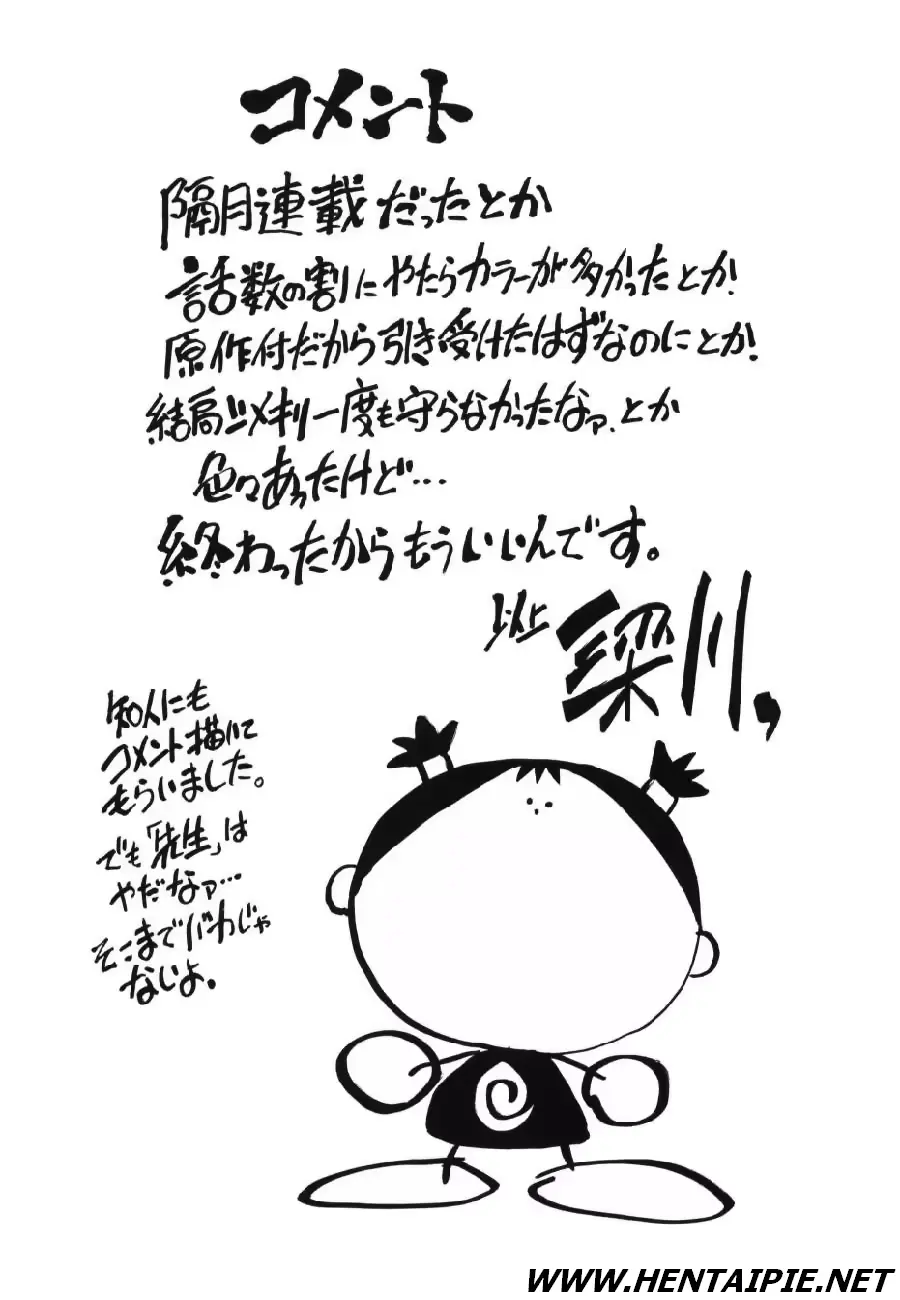 コメント
隔月連載だったとか
話数の割にやたらカラーが多かったとか！
原作付だから引き受けたはずなのにとか！
結局〆メキリ一度も守らなかったなァ、とか
色々あったけど…
終わったからもういいんです。
以上
深川、
知人にも
コメント描いて
もらいました。
でも「先生」は
やだなァ…
そこまでバカじゃ
ないよ。
WWW.HENTAIPIE.NET